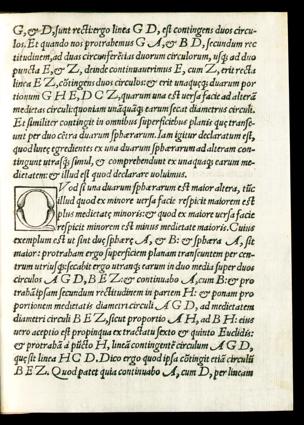 G, & D, sunt recti: ergo linea G D, est contingens duos circu-
los. Et quando nos protrahemus G A, & B D, secundum rec
titudinem, ad duas circunferētias duorum circulorum, usq; ad duo
puncta E, & Z, deinde continuauerimus E, cum Z, erit recta
linea E Z, cōtingens duos circulos: & erit unaquæq; duarum por
tionum G H E, D C Z, quarum una est uersa facie ad alterā
medietas circuli: quoniam unaquæq; earum secat diametrus circuli.
Et similiter contingit in omnibus superficiebus planis quæ transe-
unt per duo cētra duarum sphærarum. Iam igitur declaratum est,
quod lineę egredientes ex una duarum sphærarum ad alteram con-
tingunt utrasq; simul, & comprehendunt ex unaquaq; earum me-
dietatem: & illud est quod declarare uoluimus.
QVod si una duarum sphærarum est maior altera, tūc
illud quod ex minore uersa facie respicit maiorem est
plus medietatę minoris: & quod ex maiore uersa facie
respicit minorem est minus medietate maioris. Cuius
exemplum est ut sint duę sphæræ A, & B: & sphæra A, sit
maior: protraham ergo superficiem planam transeuntem per cen-
trum utriusq; secabit ergo utramq; earum in duo media super duos
circulos A G D, B E Z: & continuabo A, cum B: & pro
trahā ipsam secundum rectitudinem in partem H: & ponam pro
portionem medietatis diametri circuli A G D, ad medietatem
diametri circuli B E Z, sicut proportio A H, ad B H: eius
uero aceptio est propinqua ex tractatu sexto & quinto Euclidis:
& protrahā à pūcto H, lineā contingentē circulum A G D,
quę sit linea H C D. Dico ergo quod ipsa cōtingit etiā circulū
B E Z. Quod patet quia continuabo A, cum D, per lineam